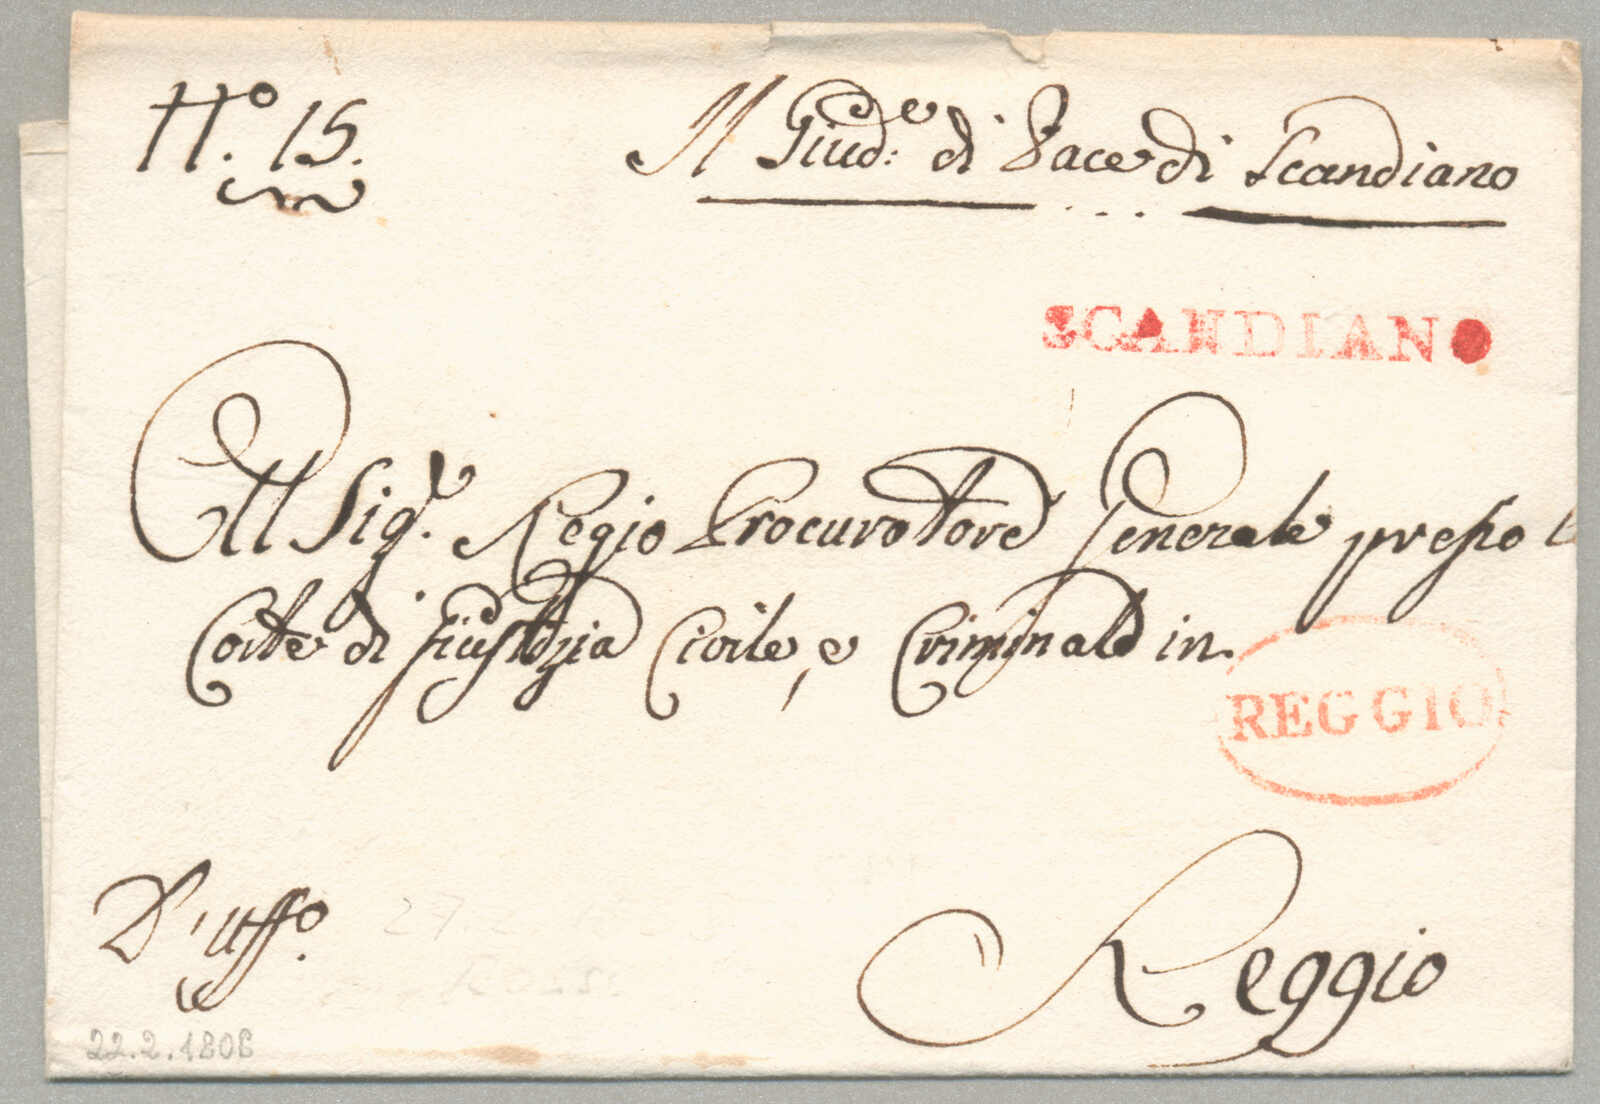 N.º 15.
Il Giud:e di Pace di Scandiano
SCANDIANO
Al Sig.r Regio Procuratore Generale presso l
Corte di Giustizia Civile, e Criminale in
REGGIO
D'uffo.
Reggio
22.2.1808